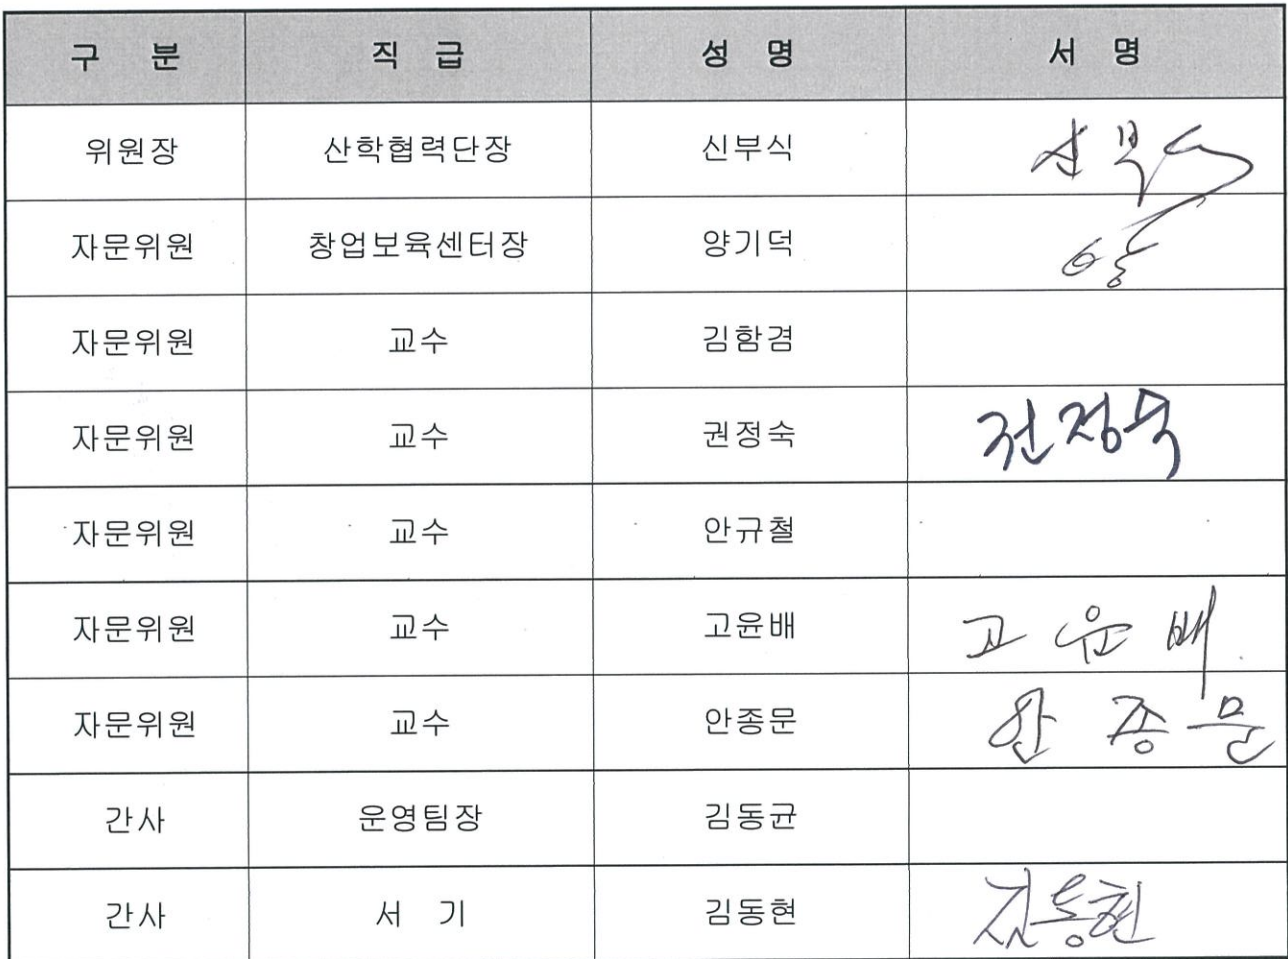 구 분 직 급 성 명 서 명
위원장 산학협력단장 신부식 신부식
자문위원 창업보육센터장 양기덕 양
자문위원 교수 김함겸
자문위원 교수 권정숙 권정숙
자문위원 교수 안규철
자문위원 교수 고윤배 고윤배
자문위원 교수 안종문 안종문
간사 운영팀장 김동균
간사 서 기 김동현 김동현